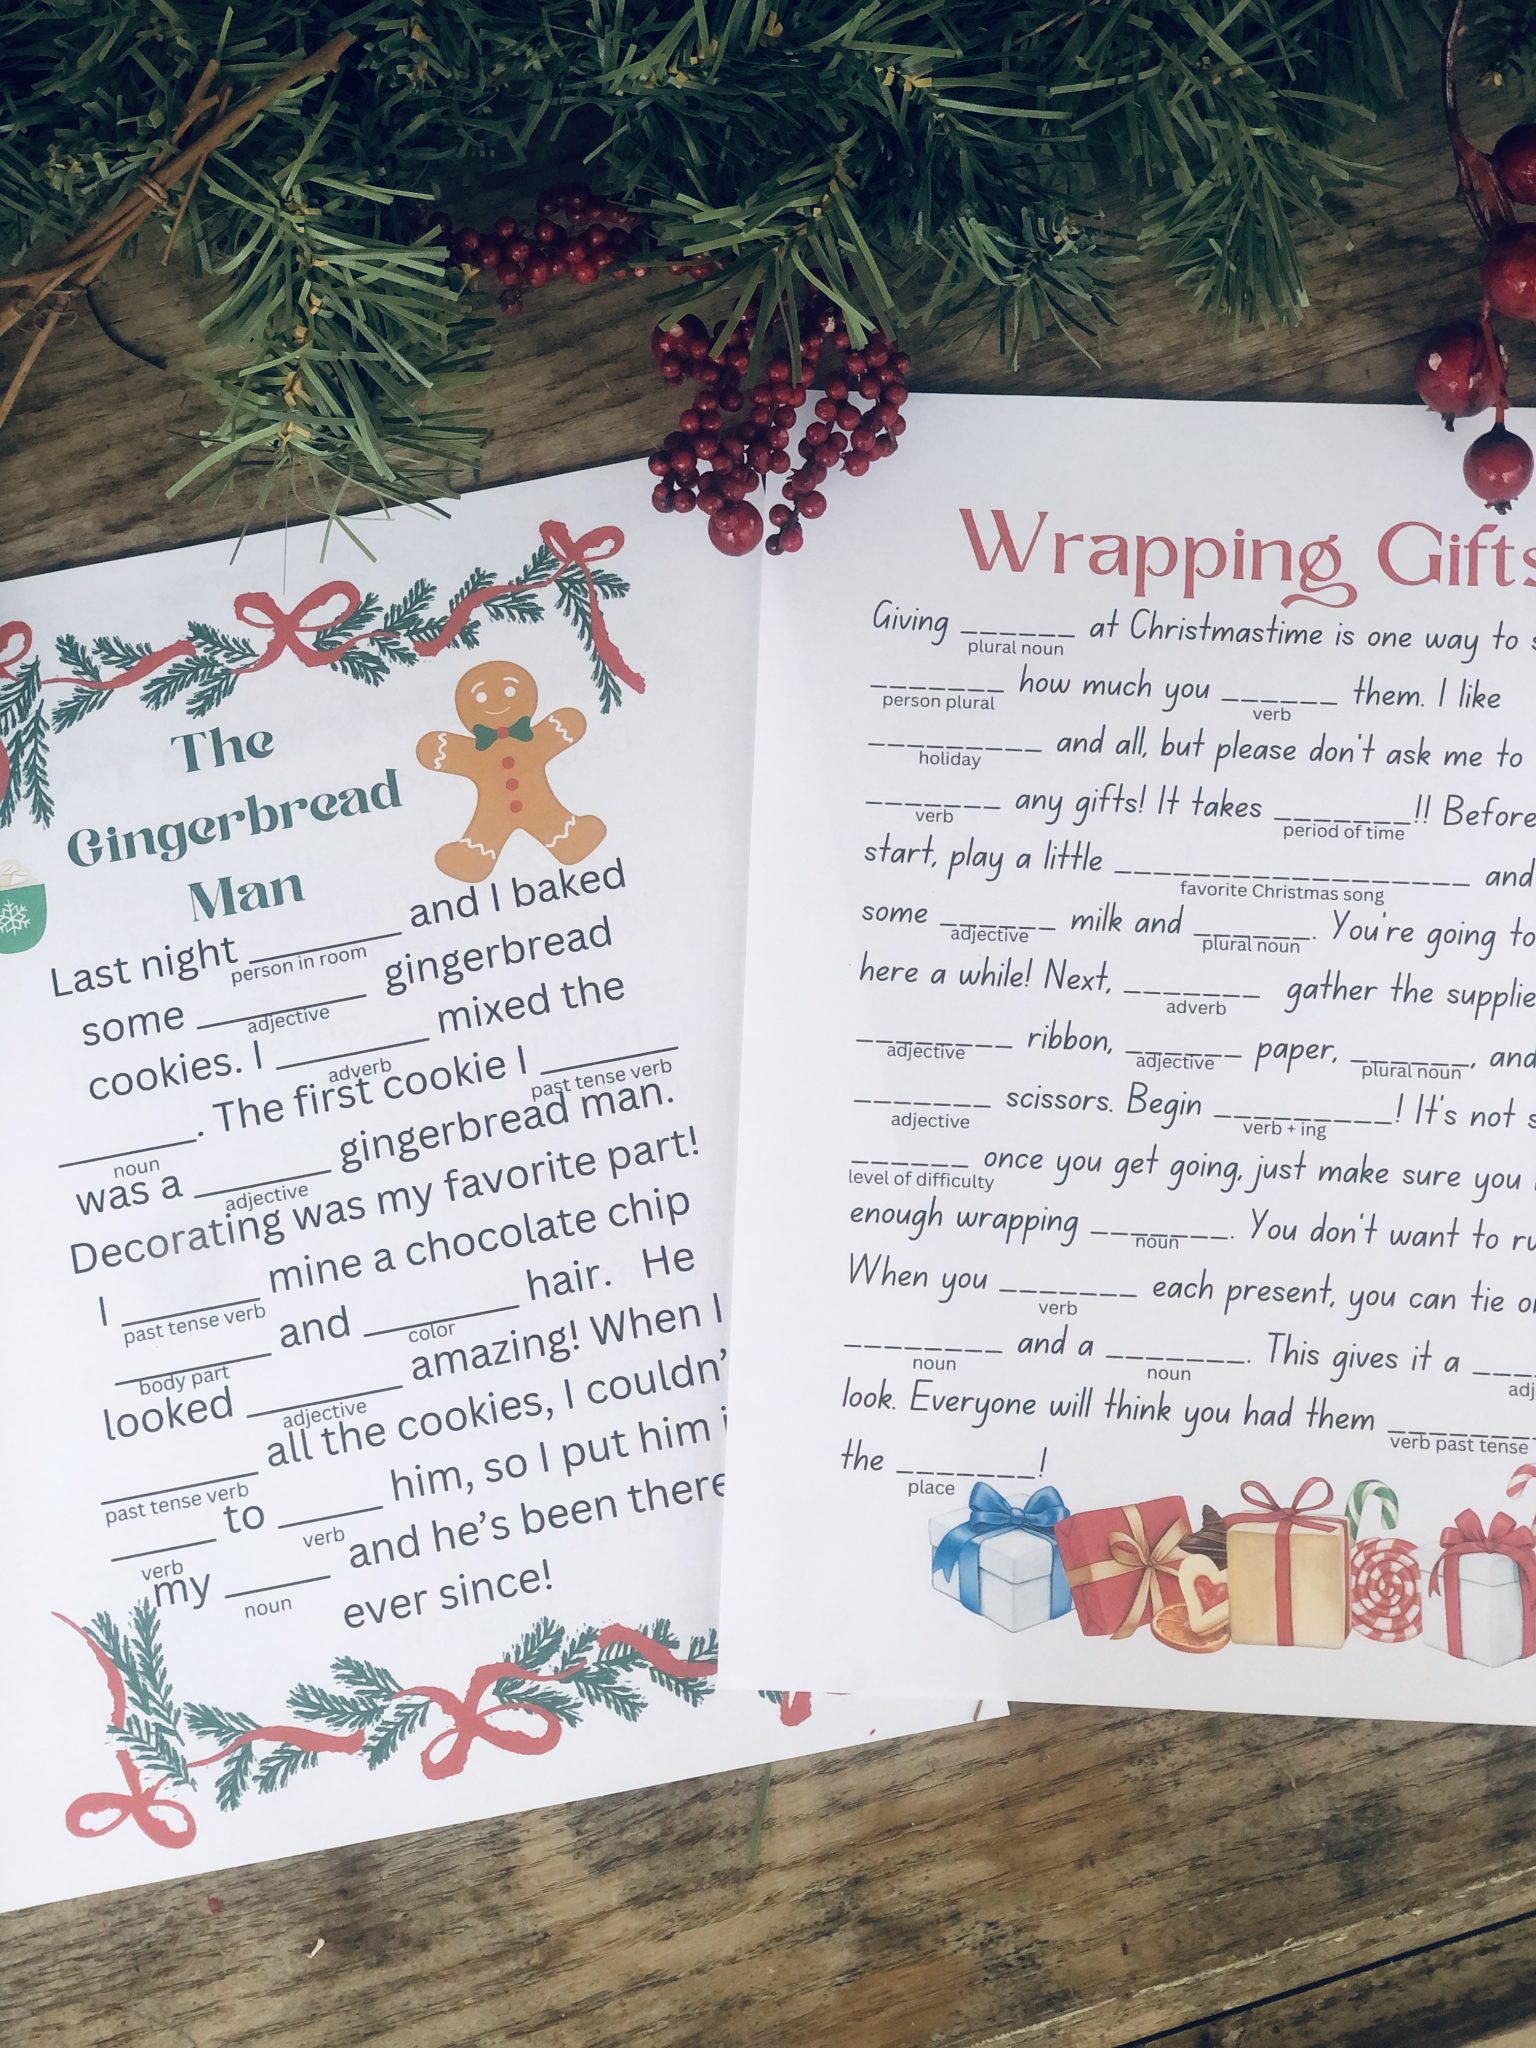 The
Gingerbread
Man
Last night __________ and I baked
person in room
some __________ gingerbread
adjective
cookies. I __________ mixed the
adverb
__________. The first cookie I __________
noun
past tense verb
was a __________ gingerbread man.
adjective
Decorating was my favorite part!
I __________ mine a chocolate chip
past tense verb
__________ and __________ hair. He
body part
color
looked __________ amazing! When I
adjective
__________ all the cookies, I couldn'
past tense verb
_______ to _______ him, so I put him
verb
verb
my _______ and he's been there
noun
ever since!
Wrapping Gifts
Giving ______ at Christmastime is one way to
plural noun
_______ how much you ______ them. I like
person plural
verb
_________ and all, but please don't ask me to
holiday
_______ any gifts! It takes _______!! Before
verb
period of time
start, play a little __________________ and
favorite Christmas song
some ______ milk and ______. You're going to
adjective
plural noun
here a while! Next, _______ gather the supplie
adverb
________ ribbon, ______ paper, ______, and
adjective
adjective
plural noun
_______ scissors. Begin _________! It's not
adjective
verb + ing
______ once you get going, just make sure you
level of difficulty
enough wrapping _______. You don't want to ru
noun
When you _______ each present, you can tie o
verb
________ and a _______. This gives it a ____
noun
noun
adj
look. Everyone will think you had them ________
verb past tense
the _______!
place